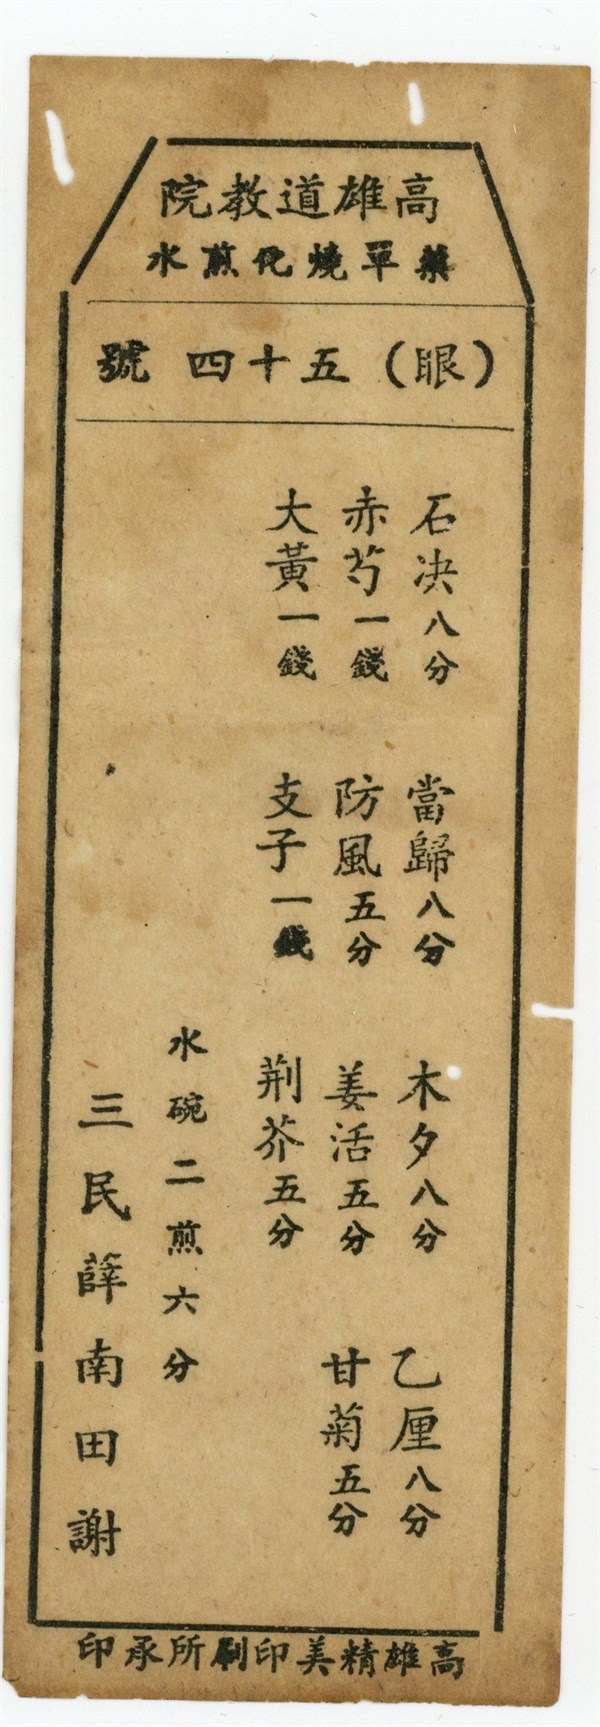 高雄道教院
藥單燒化煎水
（眼）五十四 號
石决八分 當歸八分 木夕八分 乙厘八分
赤芍一錢 防風五分 姜活五分 甘菊五分
大黃一錢 支子一錢 荆芥五分
水碗二煎六分
三民薛南田謝
高雄精美印刷所承印